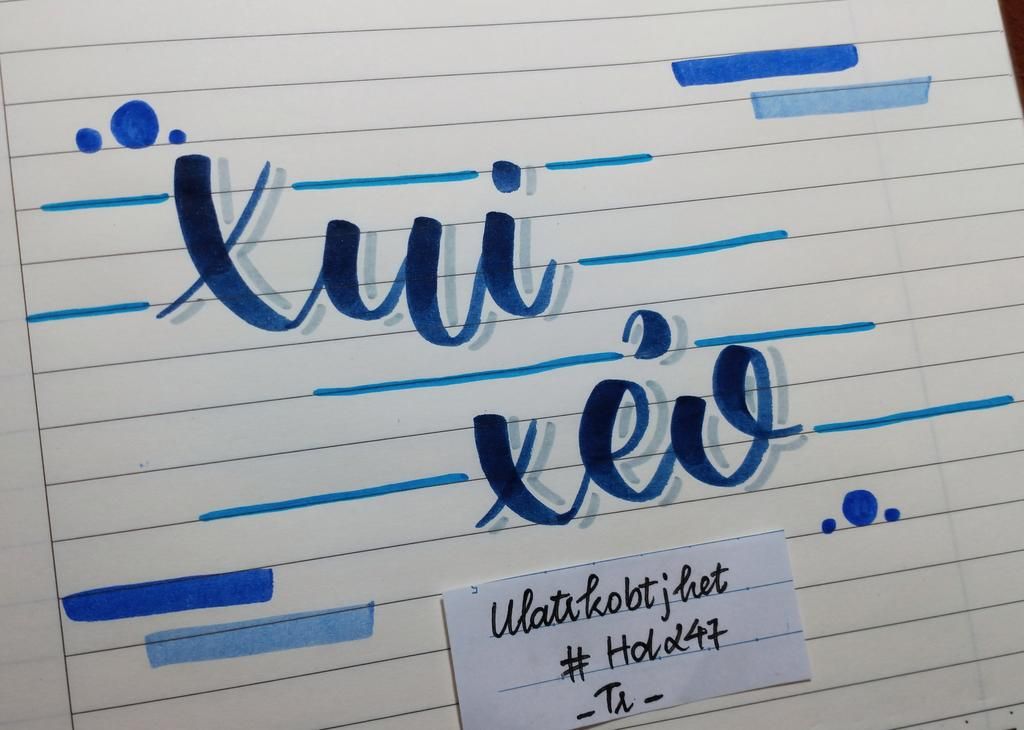 Xui
xẻo
Ulatrkobtjhet
# Hd247
- Tr -